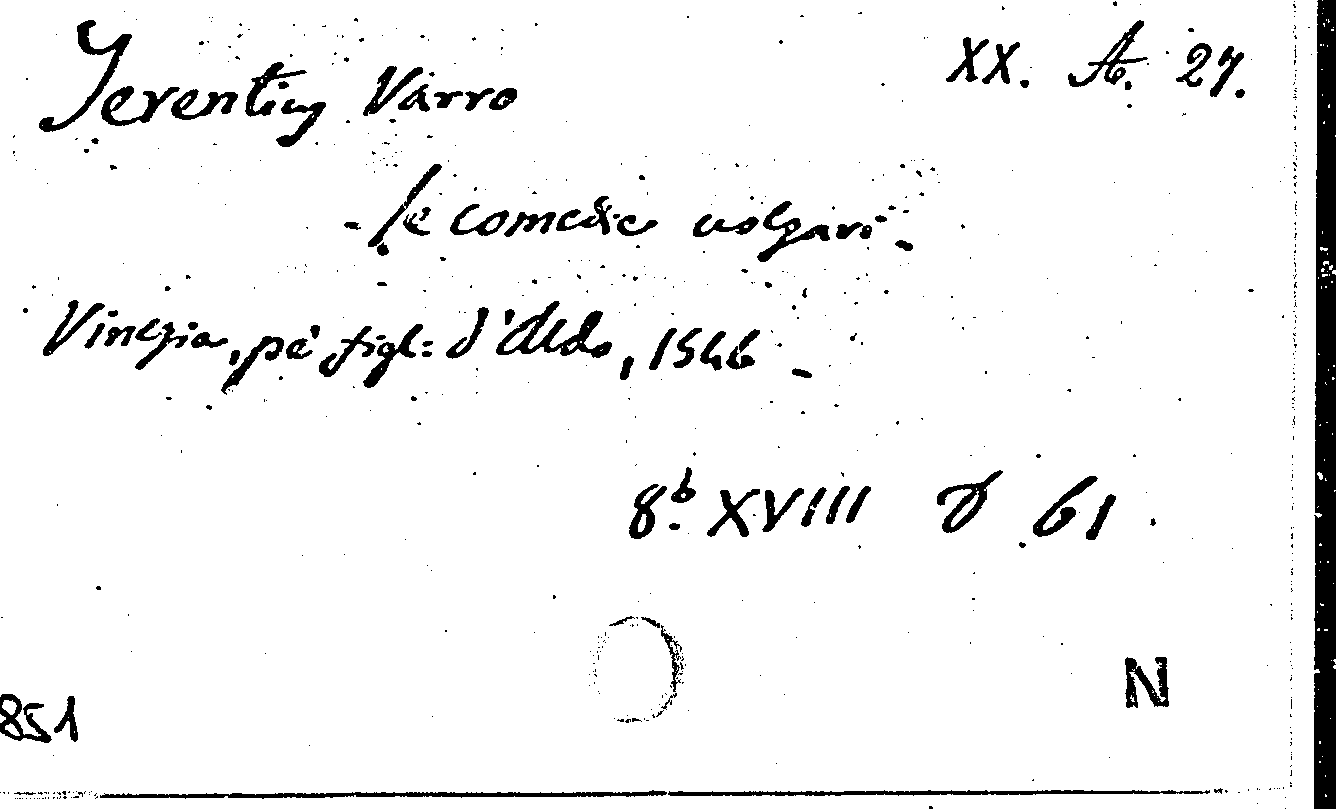 Terentius Varro XX. A. 27.
- le comedie volgari -
Vinezia, pe' figl: d'Aldo, 1546 -
8.b XVIII D 61
N
851